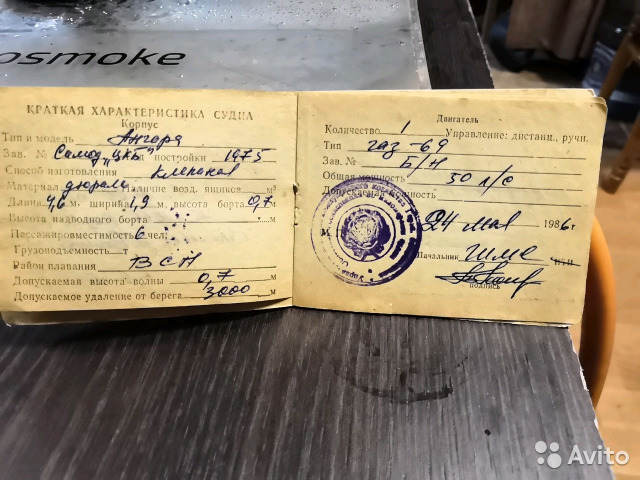 osmoke
КРАТКАЯ ХАРАКТЕРИСТИКА СУДНА
Корпус
Тип и модель Ангара
Зав. № Самод. "ЦКБ" постройки 1975
Способ изготовления клепаная
Материал дюраль Наличие возд. ящиков м³
Длина 4,6 м ширина 1,9 высота борта 0,7
Высота надводного борта м
Пассажировместимость 6 чел.
Грузоподъемность т
Район плавания ВСП
Допускаемая высота волны 0,7 м
Допускаемое удаление от берега 3000 м
Двигатель
Количество 1 Управление: дистанц., ручн.
Тип газ-69
Зав. № Б/Н
Общая мощность 50 л/с
Допускаемая мощность
М.
24 мая 1986 г
Начальник ГИМС
подпись
Avito